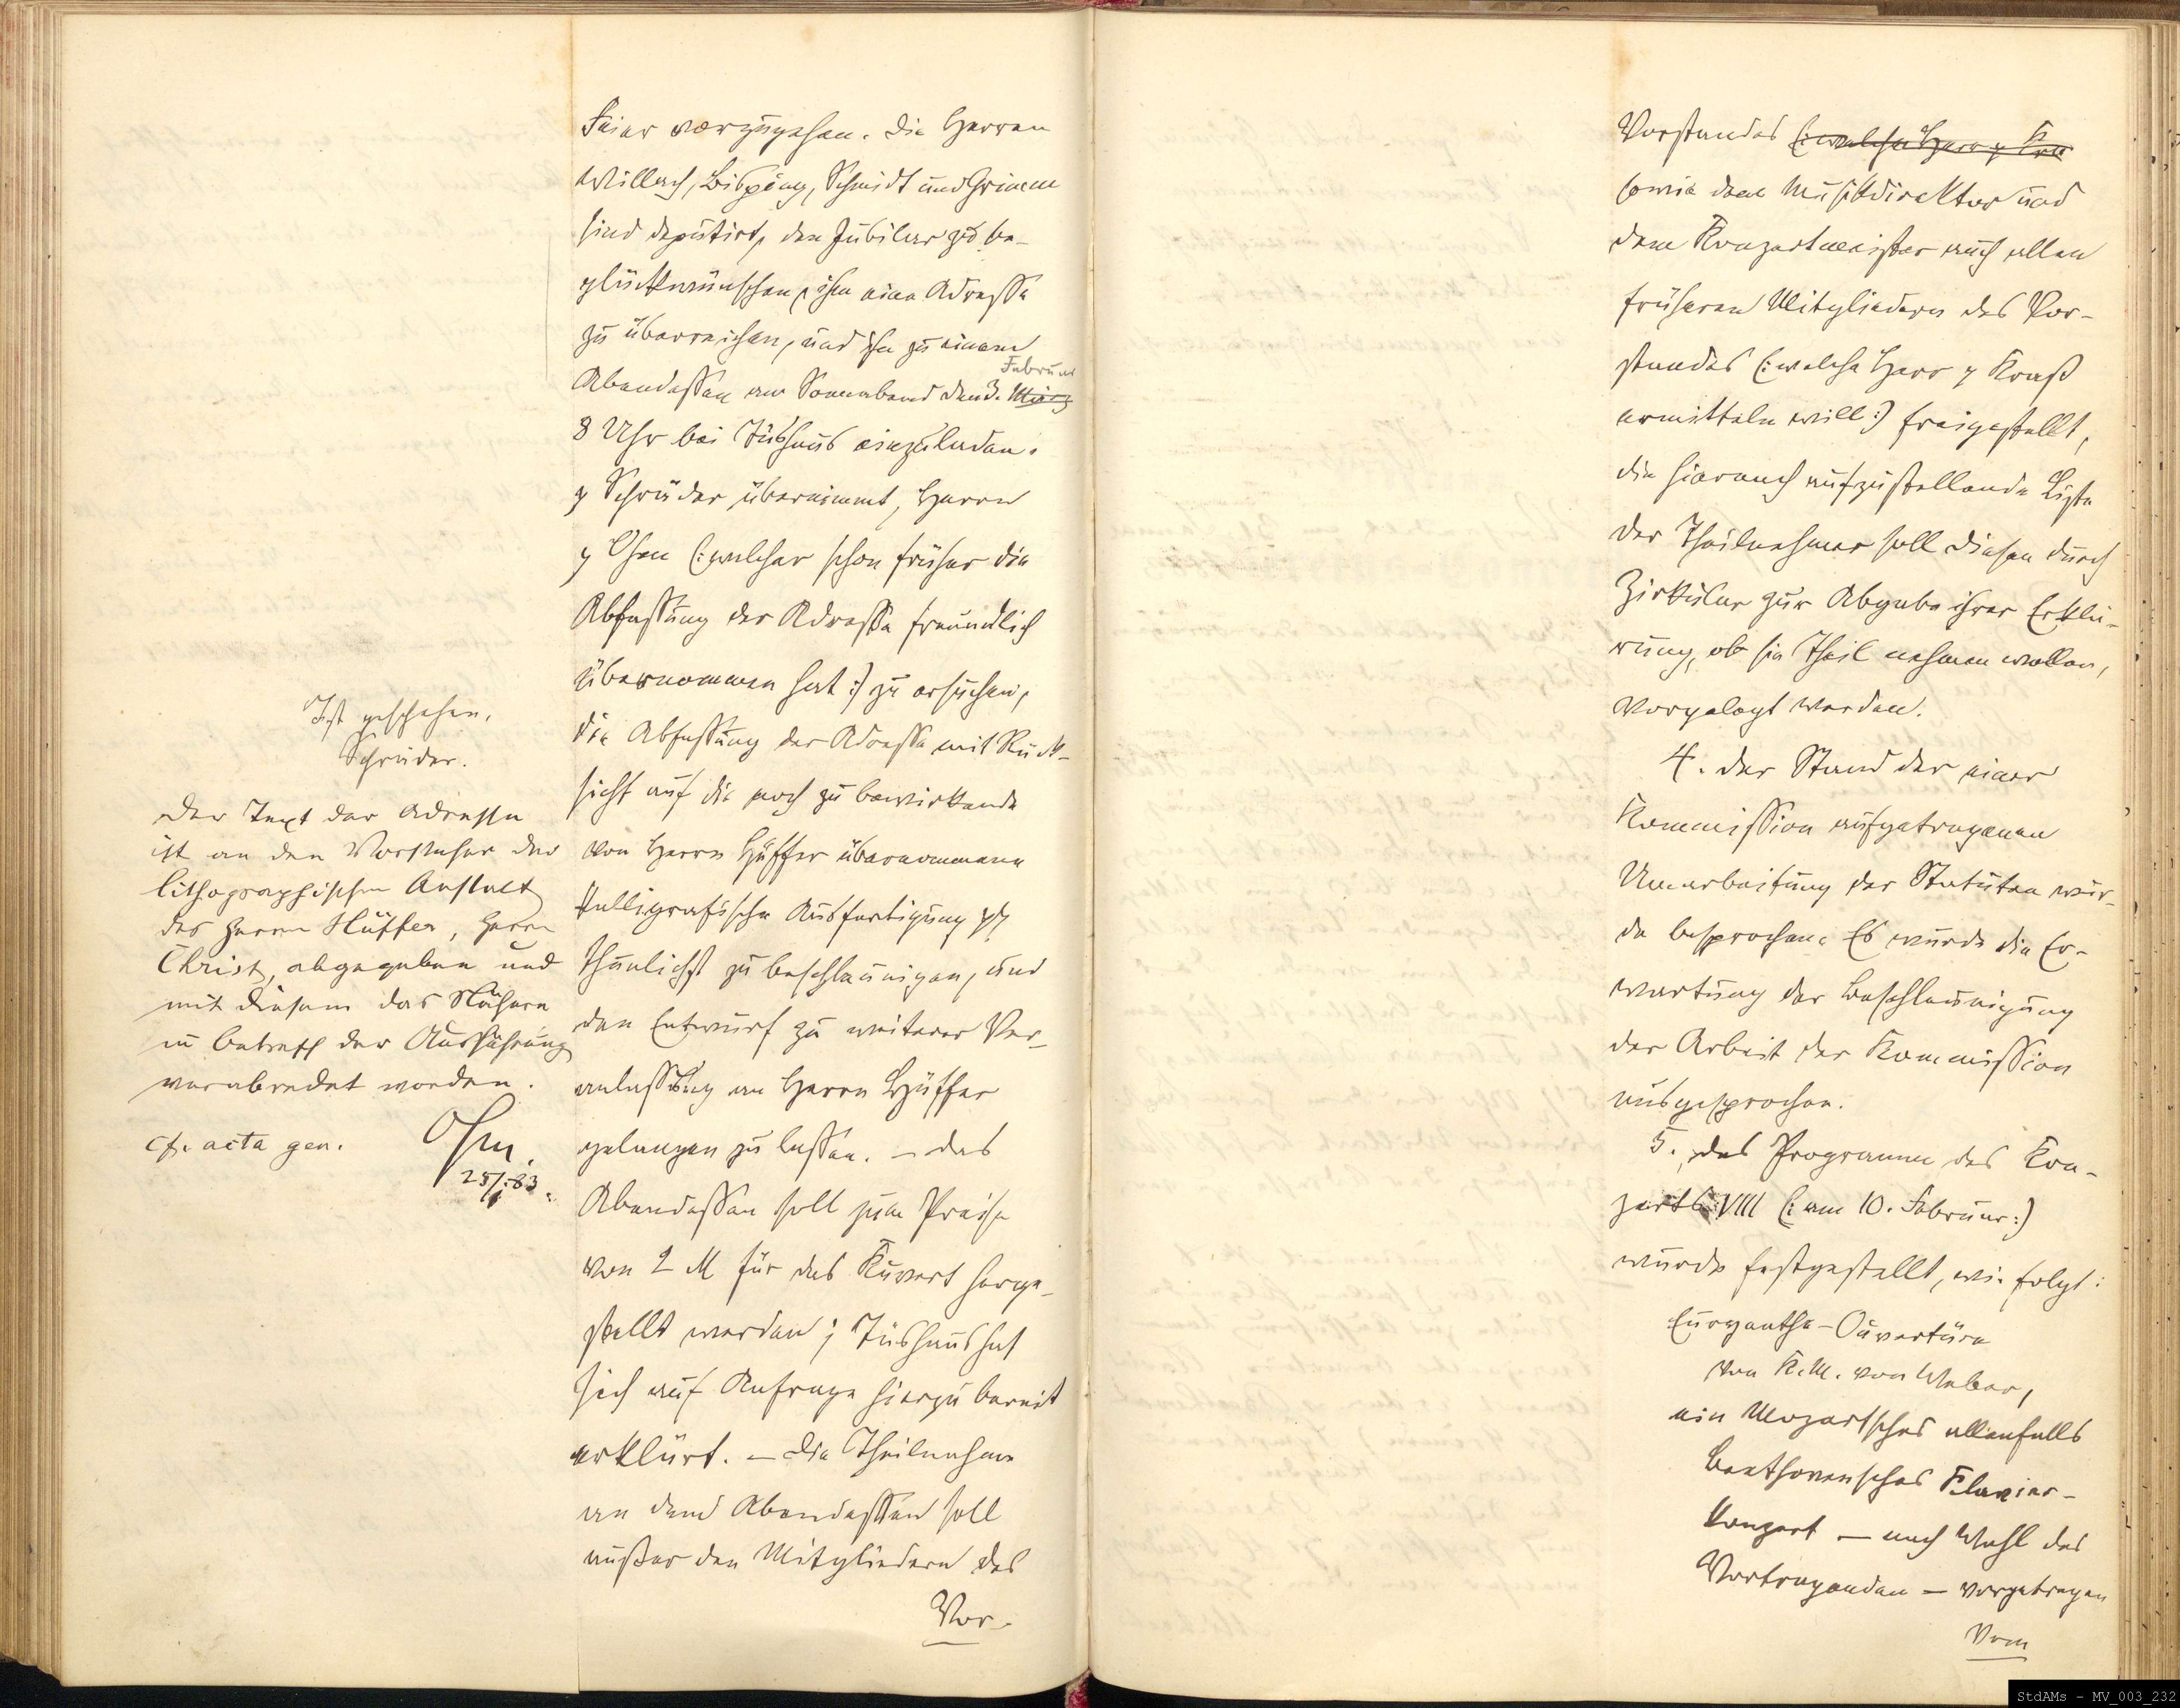 Feier vorzugehen. Die Herren
Willach, Bisping, Schmidt und Grimm
sind deputirt, den Jubilar zu be-
glückwünschen, ihm eine Adresse
zu überreichen, und ihn zu einem
Abendessen am Sonnabend den 3. März
Februar
8 Uhr bei Tüshaus einzuladen.
Schrüder übernimmt, Herrn
Ohm (: welcher schon früher die
Abfassung der Adresse freundlich
übernommen hat :) zu ersuchen,
die Abfassung der Adresse mit Rück-
sicht auf die noch zu bewirkende
von Herrn Hüffer übernommene
kalligrafische Ausfertigung
thunlichst zu beschleunigen, und
den Entwurf zu weiterer Ver-
anlassung an Herrn Hüffer
gelangen zu lassen. – Das
Abendessen soll zum Preise
von 2 M für das Kuvert herge-
stellt werden; Tüshaus hat
sich auf Anfrage hierzu bereit
erklärt. – Die Theilnahme
an dem Abendessen soll
außer den Mitgliedern des
Vor-
Ist geschehen.
Schrüder.
Der Text der Adresse
ist an den Vorsteher der
lithographischen Anstalt
des Herrn Hüffer, Herrn
Christ, abgegeben und
mit diesem das Nähere
in betreff der Ausführung
verabredet worden.
cf. acta gen.
Ohm.
25/1.83.
Vorstandes (: welche Herr
sowie dem Musikdirektor und
dem Konzertmeister auch allen
früheren Mitgliedern des Vor-
standes (: welche Herr Kraß
ermitteln will :) freigestellt,
die hiernach aufzustellende Liste
der Theilnehmer soll diesen durch
Zirkular zur Abgabe ihrer Erklä-
rung, ob sie Theil nehmen wollen,
vorgelegt werden.
4. Der Stand der einer
Kommission aufgetragenen
Umarbeitung der Statuten wur-
de besprochen. Es wurde die Er-
wartung der Beschleunigung
der Arbeit der Kommission
ausgesprochen.
5. Das Programm des Kon-
zerts VIII (: am 10. Februar :)
wurde festgestellt, wie folgt:
Euryanthe-Ouvertüre
von K. M. von Weber,
ein Mozartsches allenfalls
Beethovensches Klavier-
konzert — nach Wahl des
Vortragenden — vorgetragen
vom